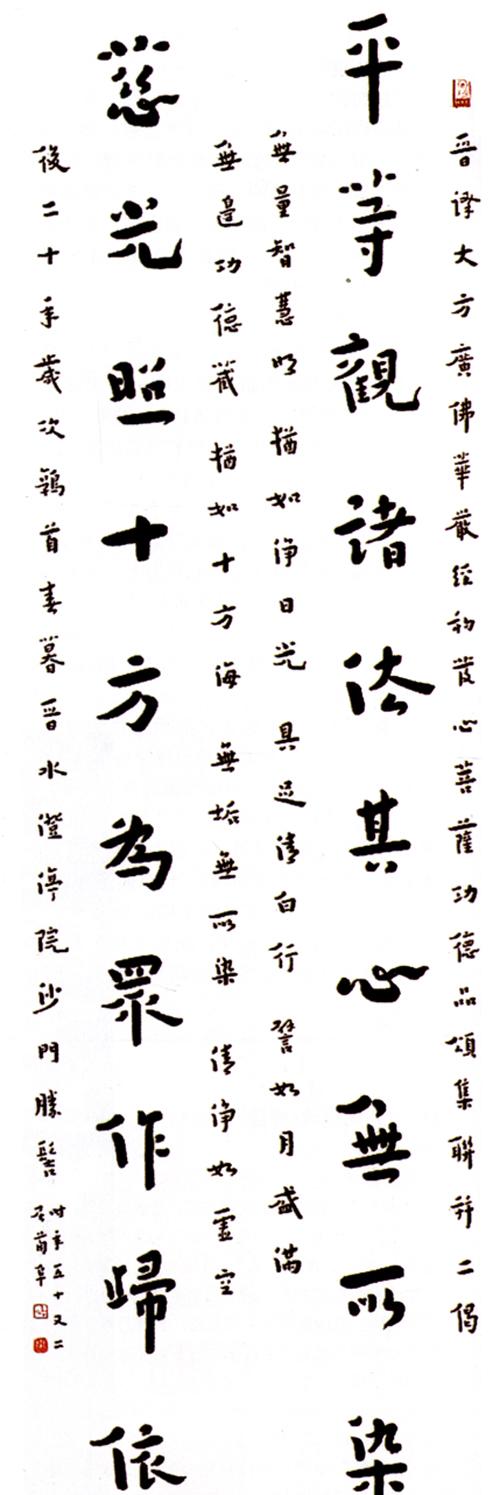 晉譯大方廣佛華嚴經初發心菩薩功德品頌集聯并二偈
平等觀諸法其心無所染
無量智慧明 猶如淨日光 具足清白行 譬如月盛滿
無邊功德藏 猶如十方海 無垢無所染 清淨如虛空
慈光照十方為眾作歸依
後二十年歲次鶉首春暮晉水澄渟院沙門勝髻
時年五十又二